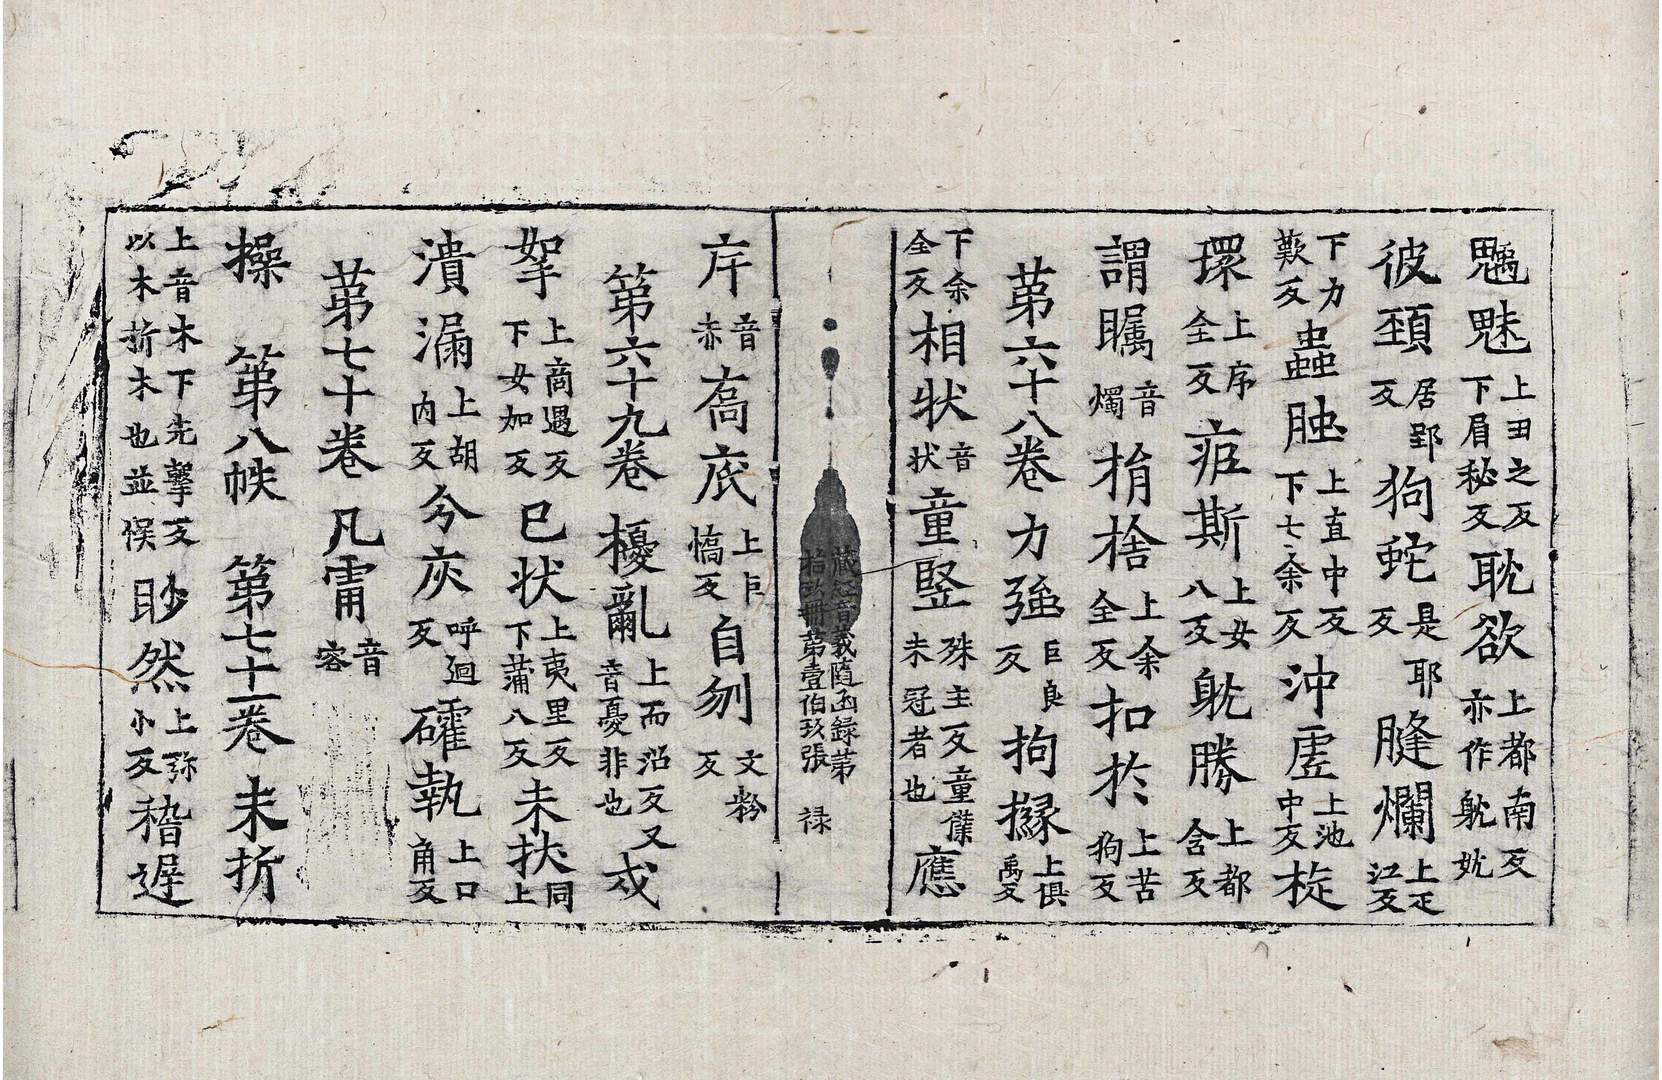 魑魅上丑之反下眉秘反耽欲上都南反亦作躭妉
彼頚居郢反狗蛇是耶反膖爛上疋江反
下力歎反蟲胆上直中反下七余反沖虗上池中反㨗
環上序全反疟斯上女八反躭勝上都含反
謂矚音燭捐捨上余全反扣扵上苦狗反
苐六十八卷力強巨良反拘㩮上俱禹反
下余全反相状音状童竪殊主反童僕未冠者也應
藏經音義隨函錄苐
拾玖冊苐壹伯玖張 禄
庍音赤髙㡳上巨憍反自刎文粉反
第六十九卷擾亂上而沼反又音憂非也或
挐上商遇反下女加反巳状上夷里反下蒲八反未扶同上
潰漏上胡內反兮灰呼廻反礭執上口角反
苐七十卷凡𩫏音容
操 第八帙 第七十一卷 未折
上音木下先擊反以木折木也並悮眇然上弥小反稽遟